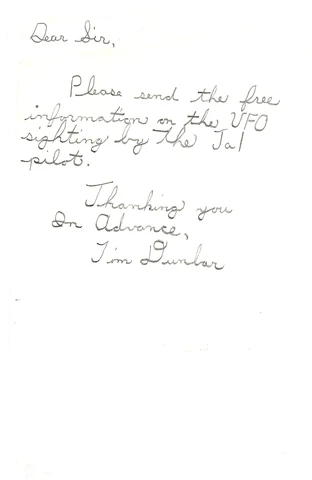 Dear Sir,
Please send the free
information on the UFO
sighting by the Jal
pilot.
Thanking you
In Advance,
Tim Dunbar